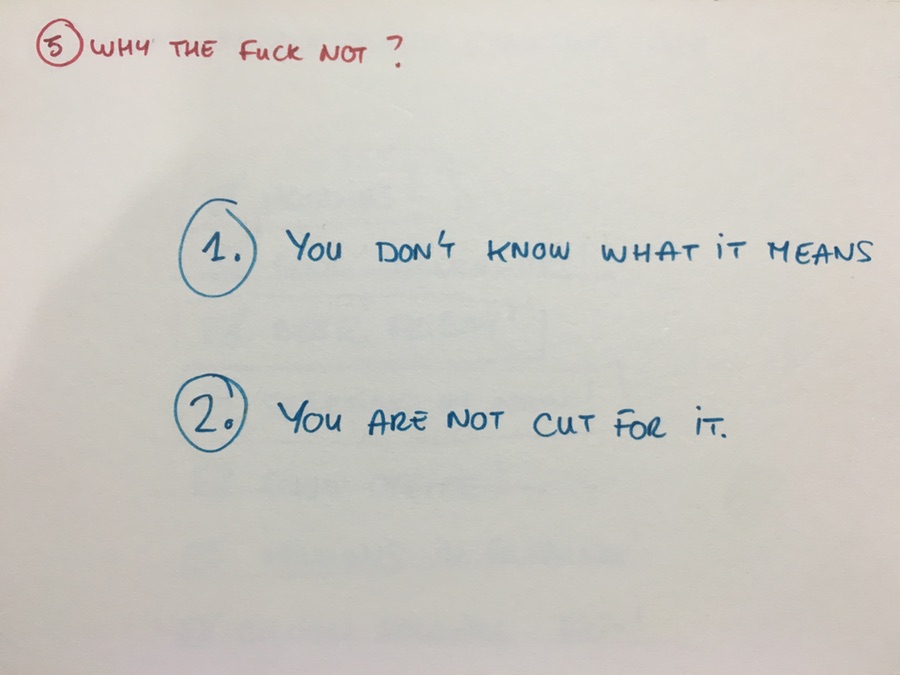 5 WHY THE FUCK NOT ?
1. YOU DON'T KNOW WHAT IT MEANS
2. YOU ARE NOT CUT FOR IT.